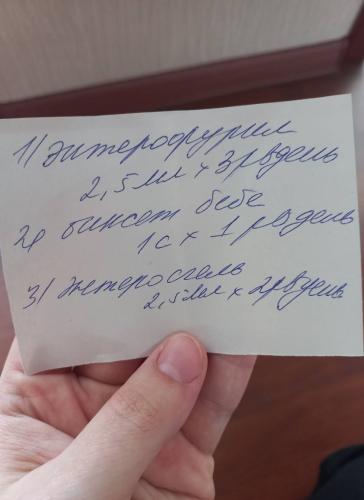 1) Энтерофурил
2,5 мл х 3 р в день
2) биксет бебе
1 с х 1 р в день
3) энтеросгель
2,5 мл х 2 р в день